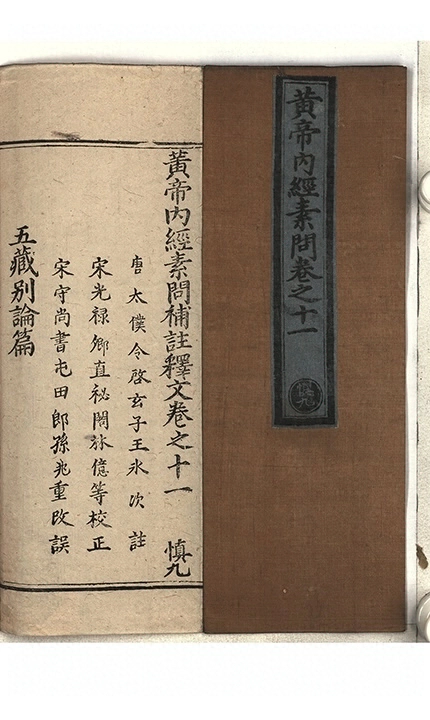 黃帝內經素問卷之十一
慎九
黃帝內經素問補註釋文卷之十一 慎九
唐太僕令啓玄子王氷次註
宋光禄卿直祕閣林億等校正
宋守尚書屯田郎孫兆重改誤
五藏别論篇